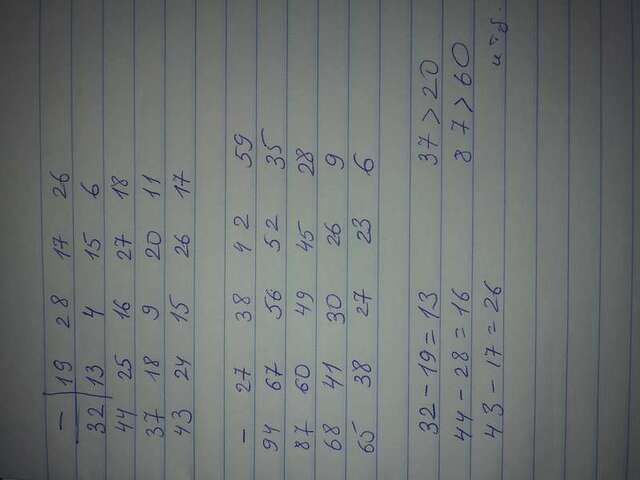 — 19 28 17 26
32 13 4 15 6
44 25 16 27 18
37 18 9 20 11
43 24 15 26 17
— 27 38 42 59
94 67 56 52 35
87 60 49 45 28
68 41 30 26 9
65 38 27 23 6
32 - 19 = 13 37 > 20
44 - 28 = 16 87 > 60
43 - 17 = 26